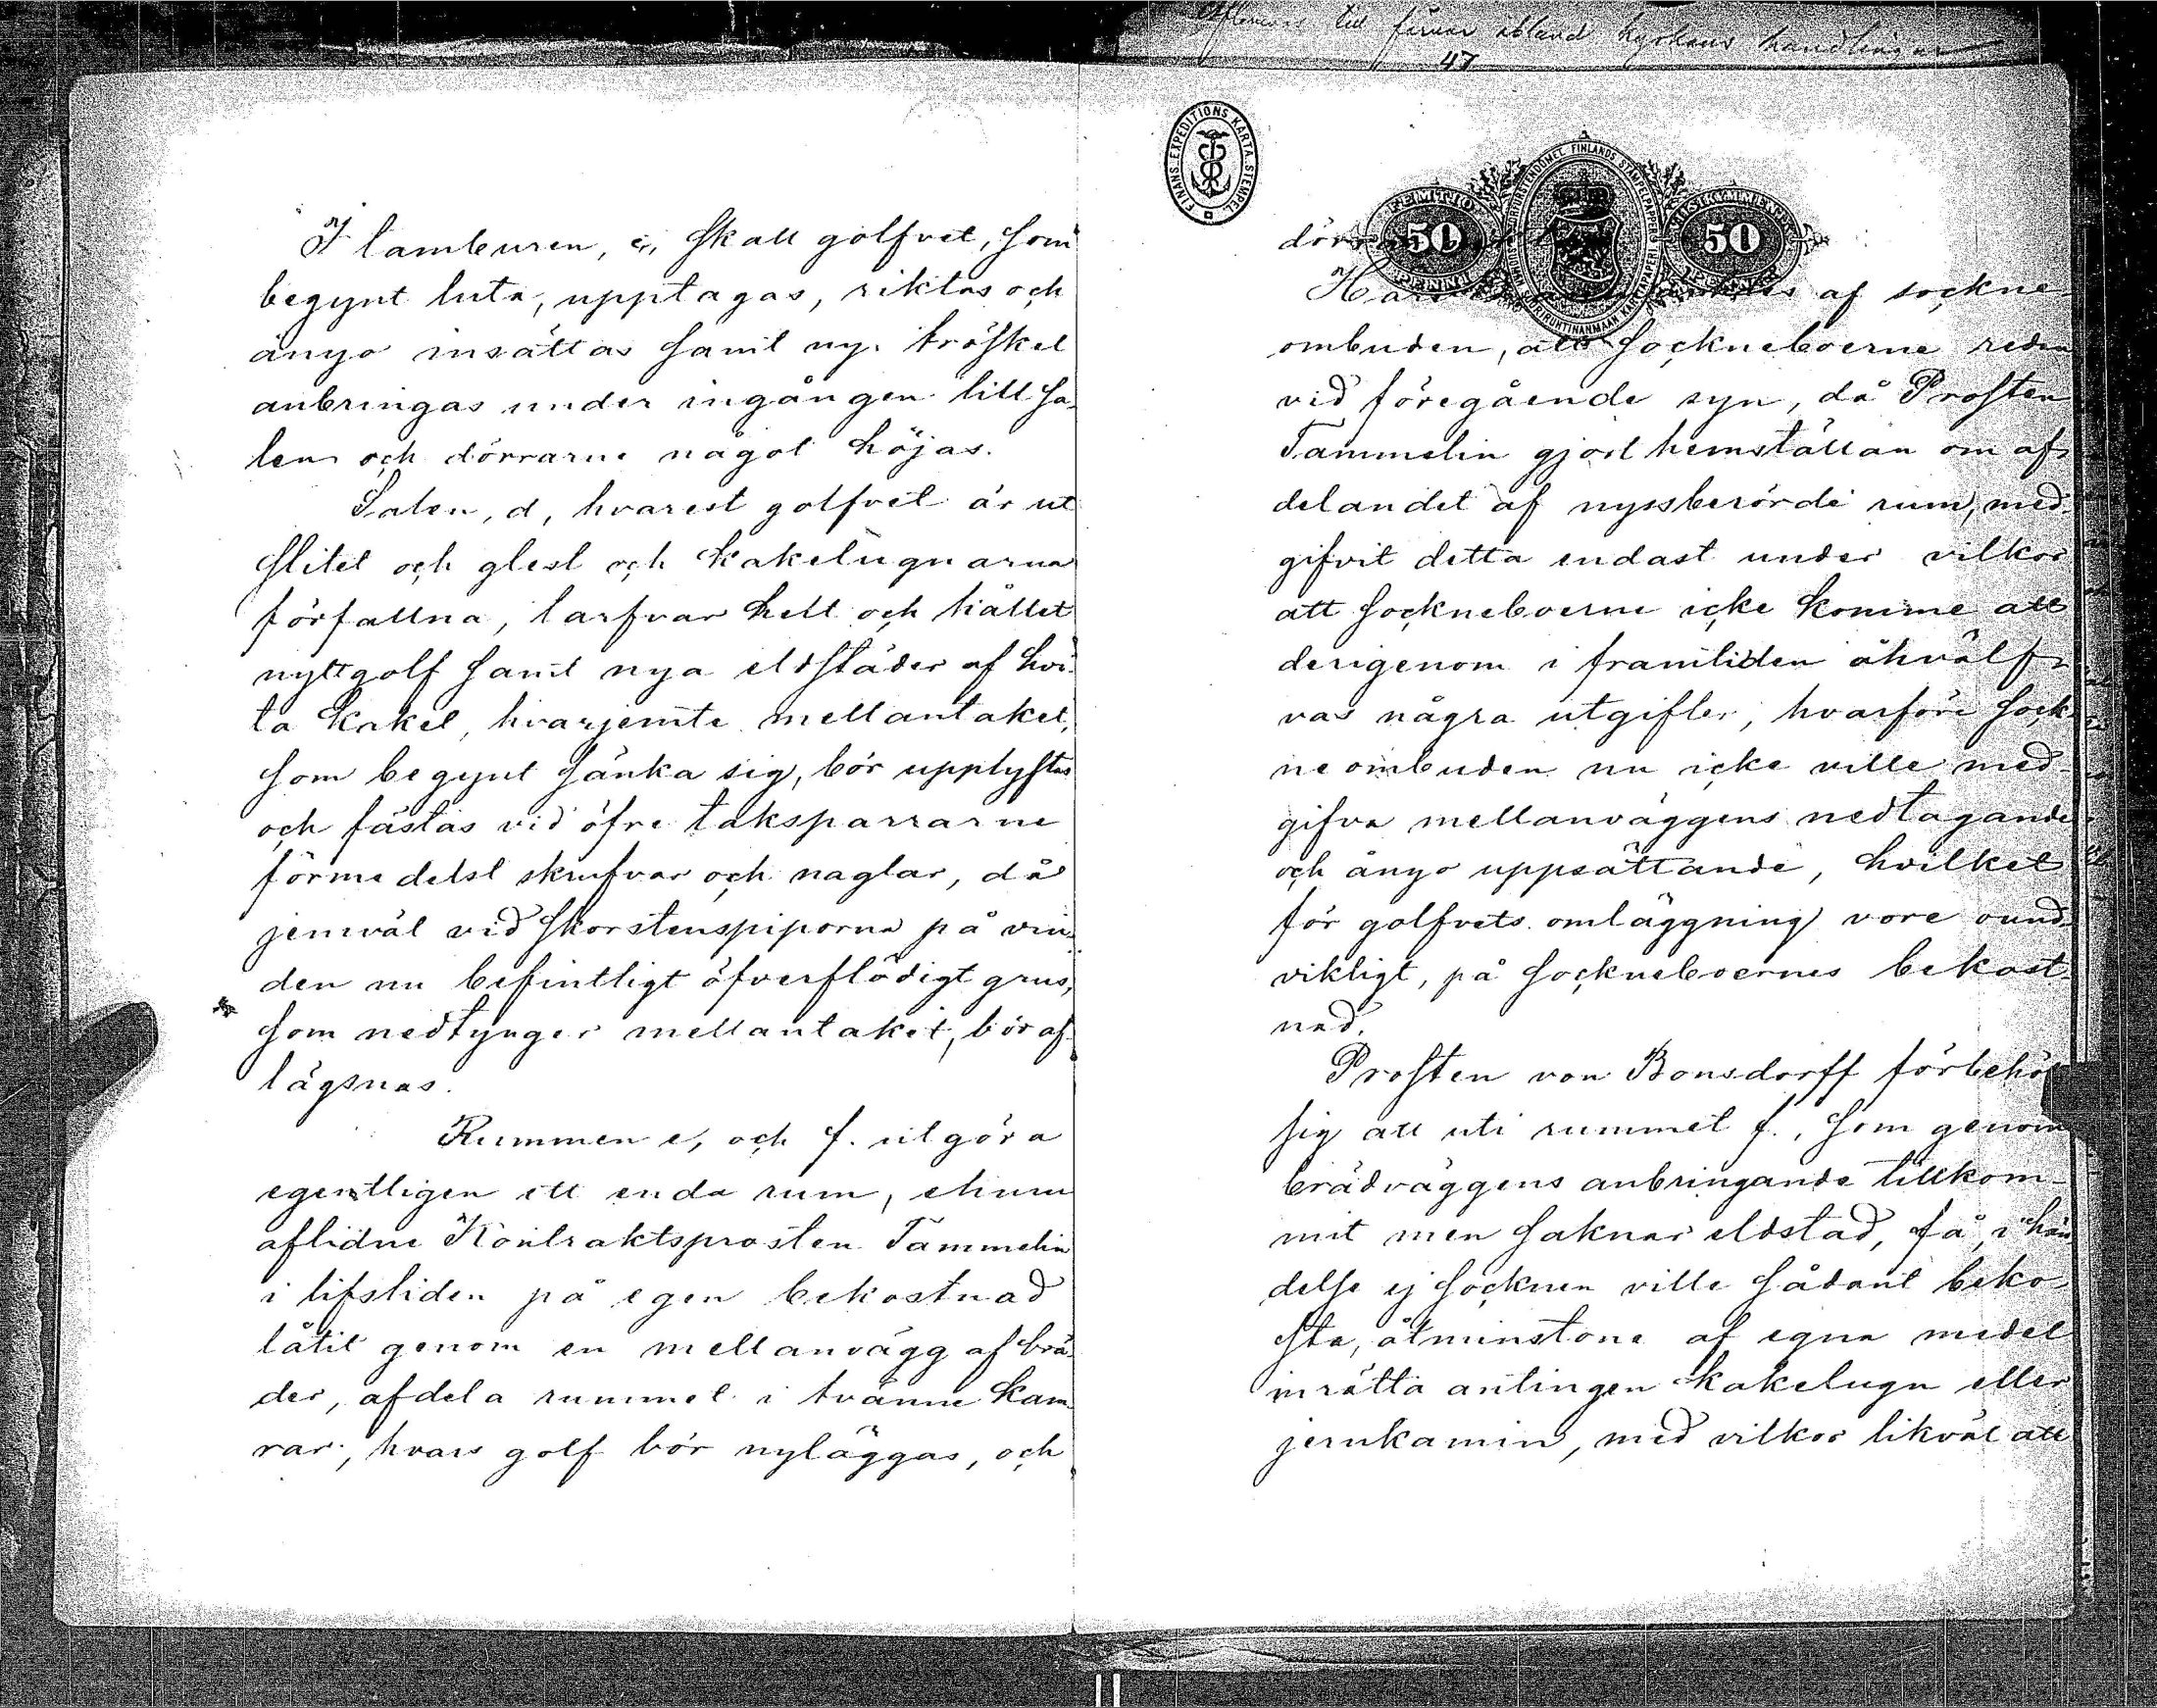 I tamburen, c, skall golfvet, som
begynt luta, upptagas, riktas och
ånyo insättas samt ny tröskel
anbringas under ingången till sa-
len och dörrarne något höjas.
Salen, d, hvarest golfvet är ut
slitet och glest och kakelugnarna
förfallna, tarfvar helt och hållet
nytt golf samt nya eldstäder af hvi-
ta kakel, hvarjemte mellantaket,
som begynt sänka sig, bör upplyftas
och fästas vid öfre taksparrarne
förmedelst skrufvar och naglar, då
jemväl vid skorstenspiporna på vin-
den nu befintligt öfverflödigt grus,
som nedtynger mellantaket, bör af-
lägsnas.
Rummen e, och f. utgöra
egentligen ett enda rum, ehuru
aflidne Kontraktsprosten Tammelin
i lifstiden på egen bekostnad
låtit genom en mellanvägg af brä-
der, afdela rummet i tvänne kam-
rar, hvars golf bör nyläggas, och
till förvar ibland kyrkans handlingar
47
FINANS.EXPEDITIONS KARTA.STEMPEL
FINLANDS STÄMPELPAPPER
50 50
PENNI
af sockne-
ombuden, att sockneboerne redan
vid föregående syn, då Prosten
Tammelin gjort hemställan om af-
delandet af nyssberörde rum, med-
gifvit detta endast under vilkor
att sockneboerne icke komme att
derigenom i framtiden åhvälf-
vas några utgifter, hvarföre sock-
neombuden nu icke ville med-
gifva mellanväggens nedtagande
och ånyo uppsättande, hvilket
för golfvets omläggning vore ound-
vikligt, på sockneboernes bekost-
nad.
Prosten von Bonsdorff förbehöl
sig att uti rummet f., som genom
brädväggens anbringande tillkom-
mit men saknar eldstad, få, i hän-
delse ej socknen ville sådant beko-
sta, åtminstone af egna medel
inrätta antingen kakelugn eller
jernkamin, med vilkor likväl att